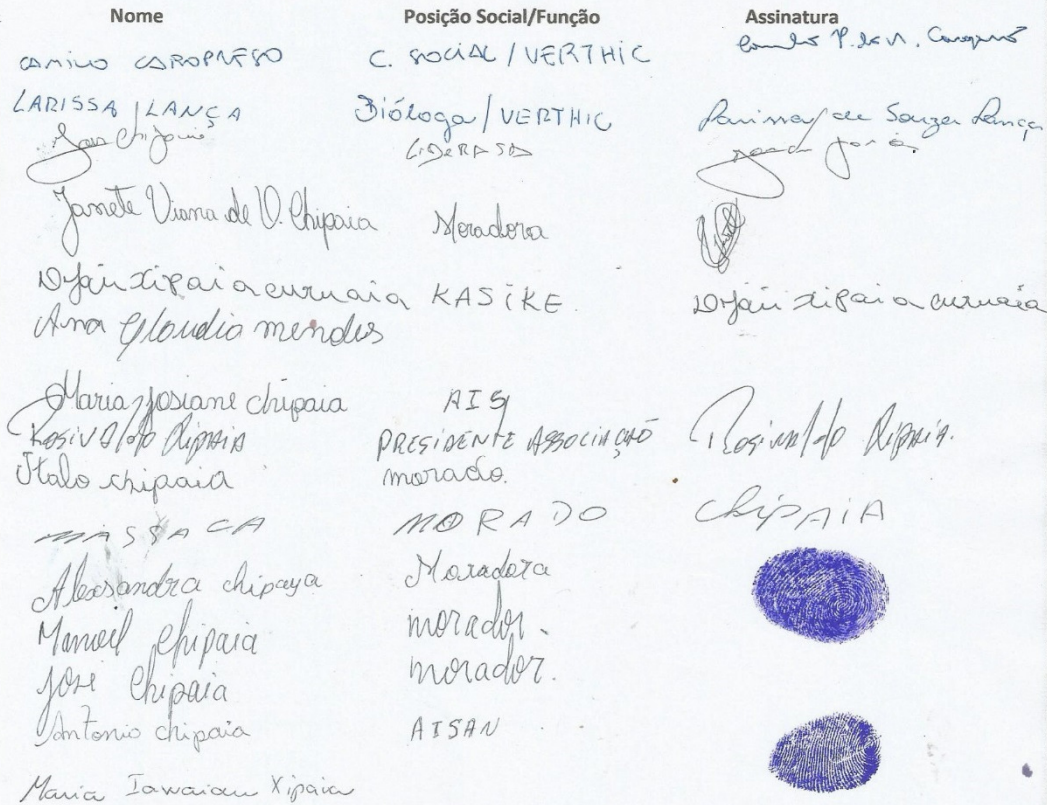 Nome Posição Social/Função Assinatura
CAMILO CAROPRESO C. SOCIAL / VERTHIC
LARISSA LANÇA Bióloga / VERTHIC Larissa de Souza Lança
LIDERASA
Janete Viana de O. Chipaia Moradora
Dijáu xipai a curuaia KASIKE Dijáu xipai a curuaia
Ana Claudio mendes
Maria Josiane chipaia AIS
Rosivaldo Xipaia PRESIDENTE ASSOCIACAÕ Rosivaldo Xipaia.
Italo chipaia morado.
MASSACA MORADO ChipAiA
Alexsandra chipaya Moradora
Manoel chipaia morador.
José Chipaia morador.
Antonio chipaia AISAN
Maria Xipaia